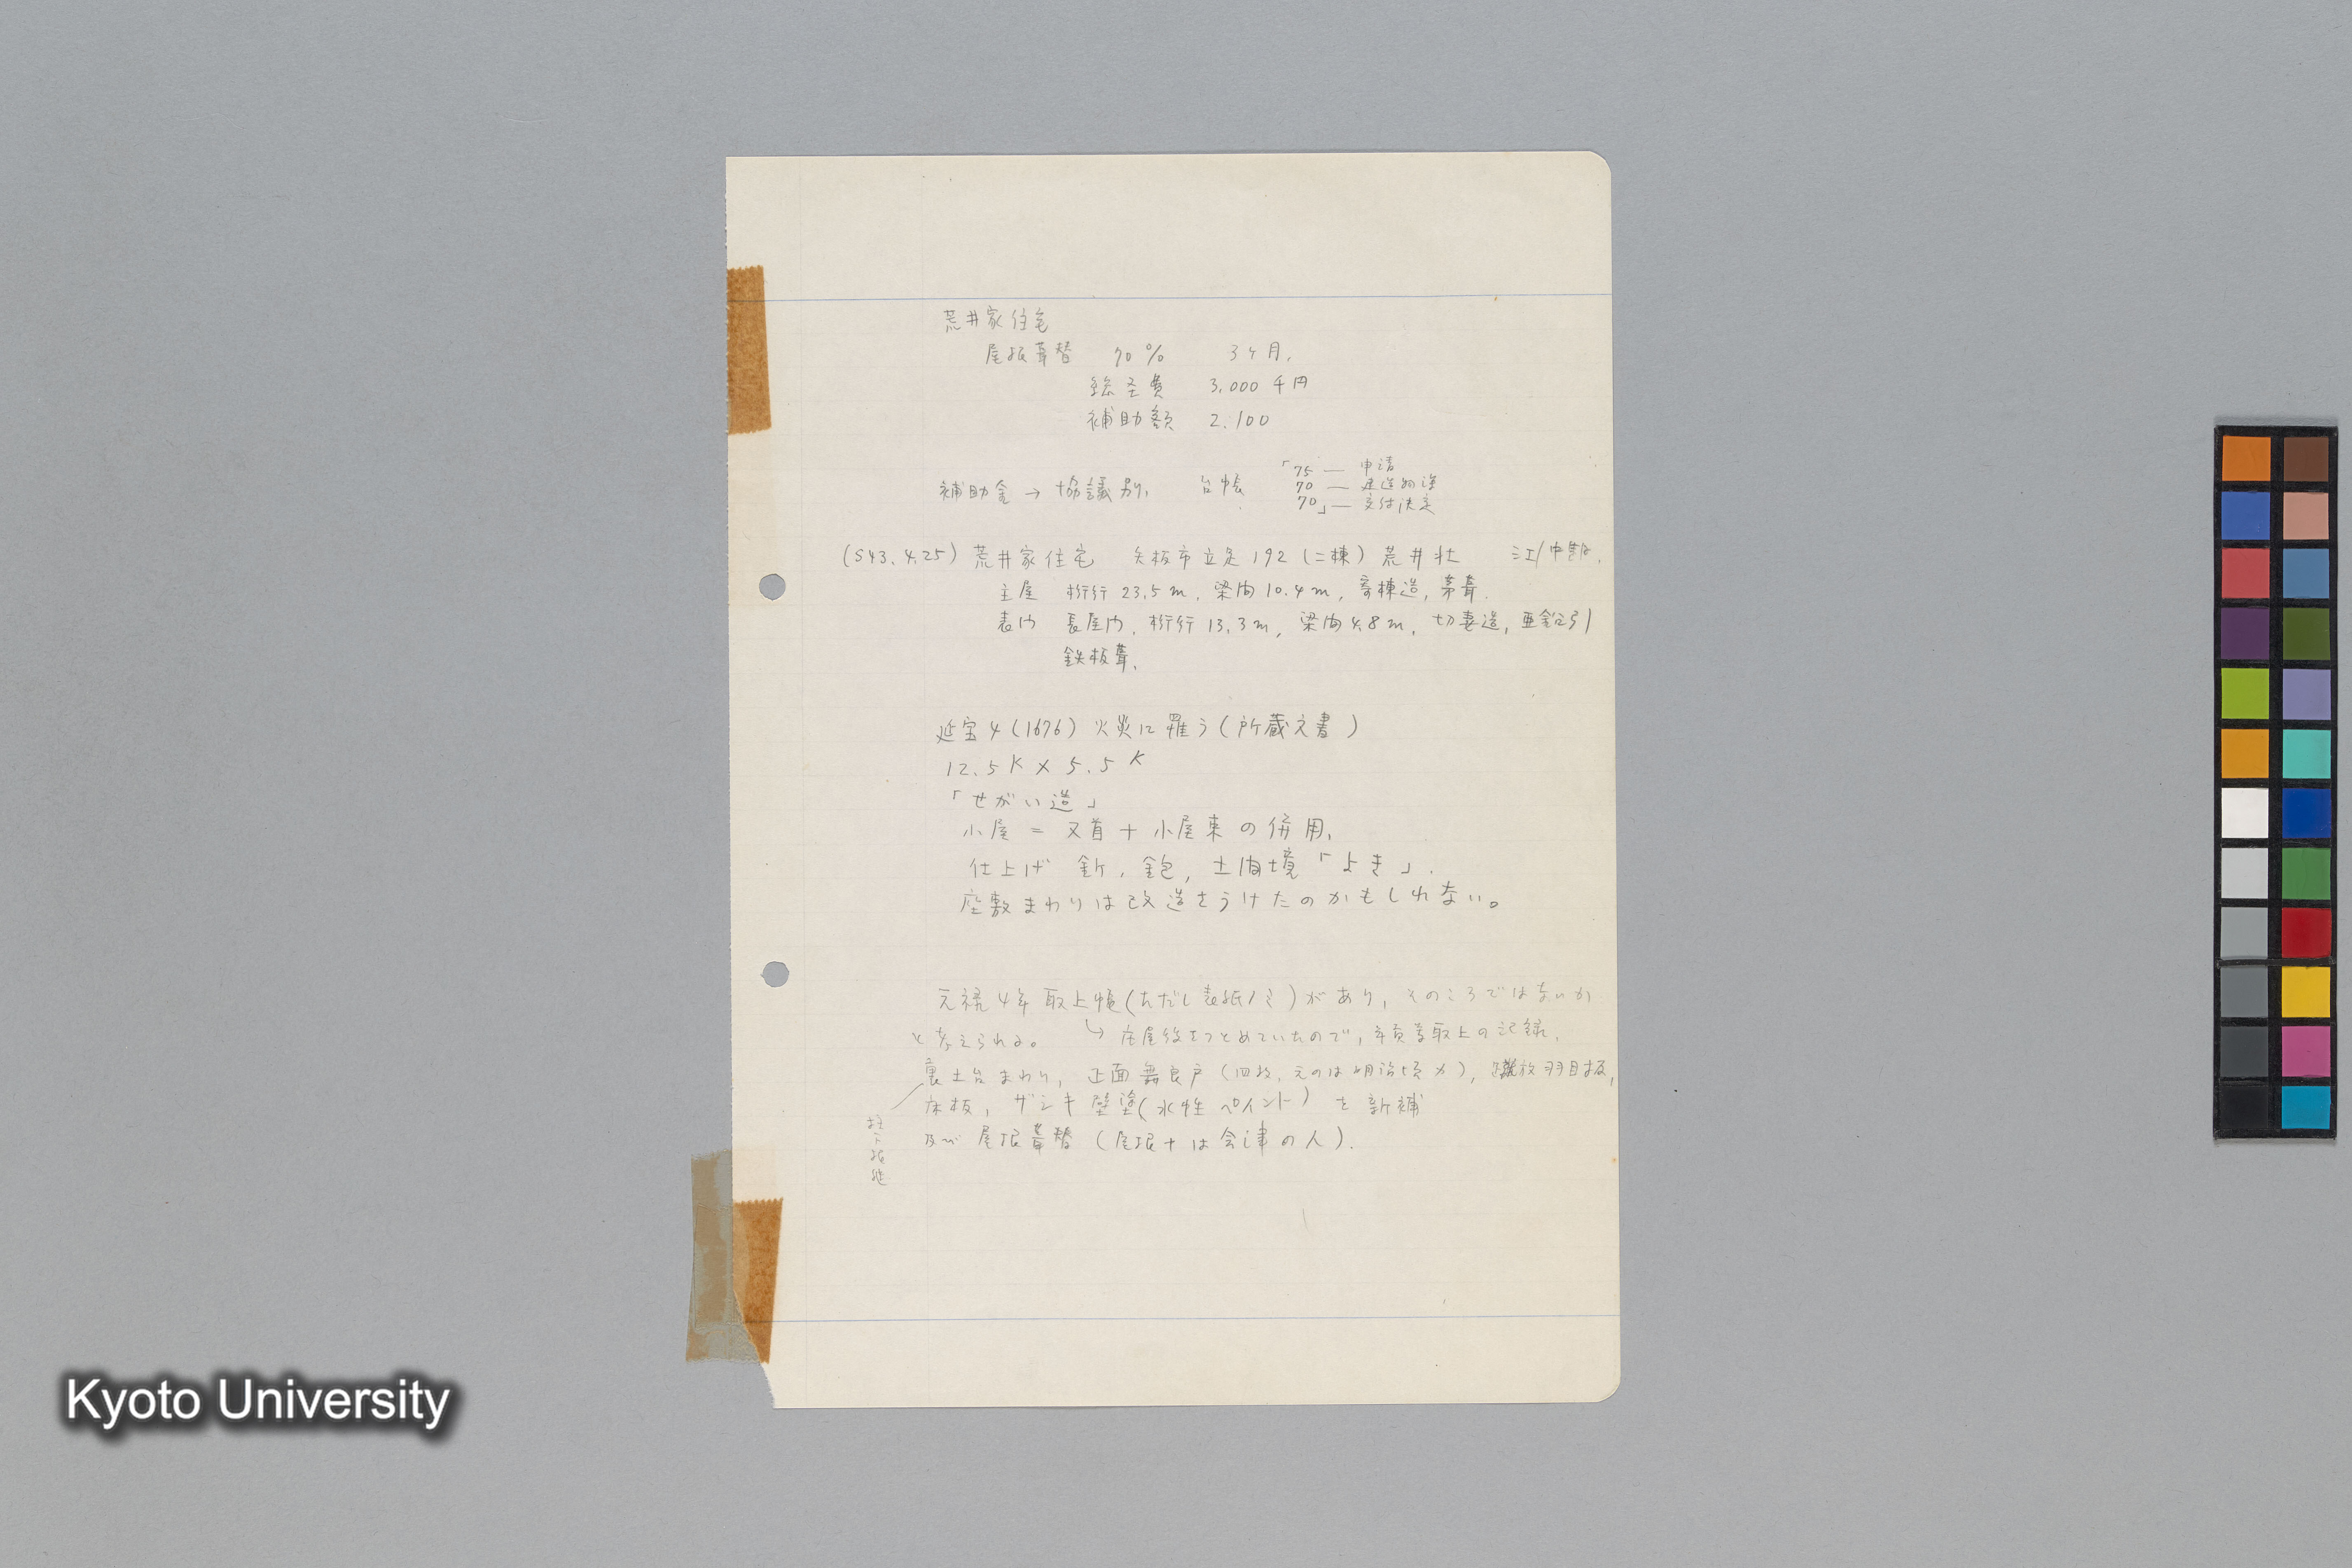 荒井家住宅
屋根葺替 70% 3ケ月.
総圣費 3,000千円
補助額 2.100
補助金 → 協議別. 台帳
「75 — 申請
70 — 建造物課
70」— 交付決定
(S43.4.25) 荒井家住宅 矢板市立足192 (二棟) 荒井壮 江/中期.
主屋 桁行23.5m, 梁間10.4m, 寄棟造, 茅葺.
表門 長屋門, 桁行13.3m, 梁間4.8m, 切妻造, 亜鉛引
鉄板葺.
延宝4(1676) 火災に罹う(所蔵文書)
12.5K × 5.5K
「せがい造」
小屋 = 叉首 + 小屋束の併用.
仕上げ 釿, 鉋, 土間境「よき」.
座敷まわりは改造をうけたのかもしれない。
元禄4年 取上帳(ただし表紙ノミ)があり, そのころではないか
と考えられる。 ↳ 庄屋役をつとめていたので, 年貢等取上の記録.
裏土台まわり, 正面舞良戸(四枚, 元のは明治頃カ), 羽目板,
床板, ザシキ壁塗(水性ペイント)を新補
及び 屋根葺替 (屋根十は会津の人).
柱下根継
Kyoto University